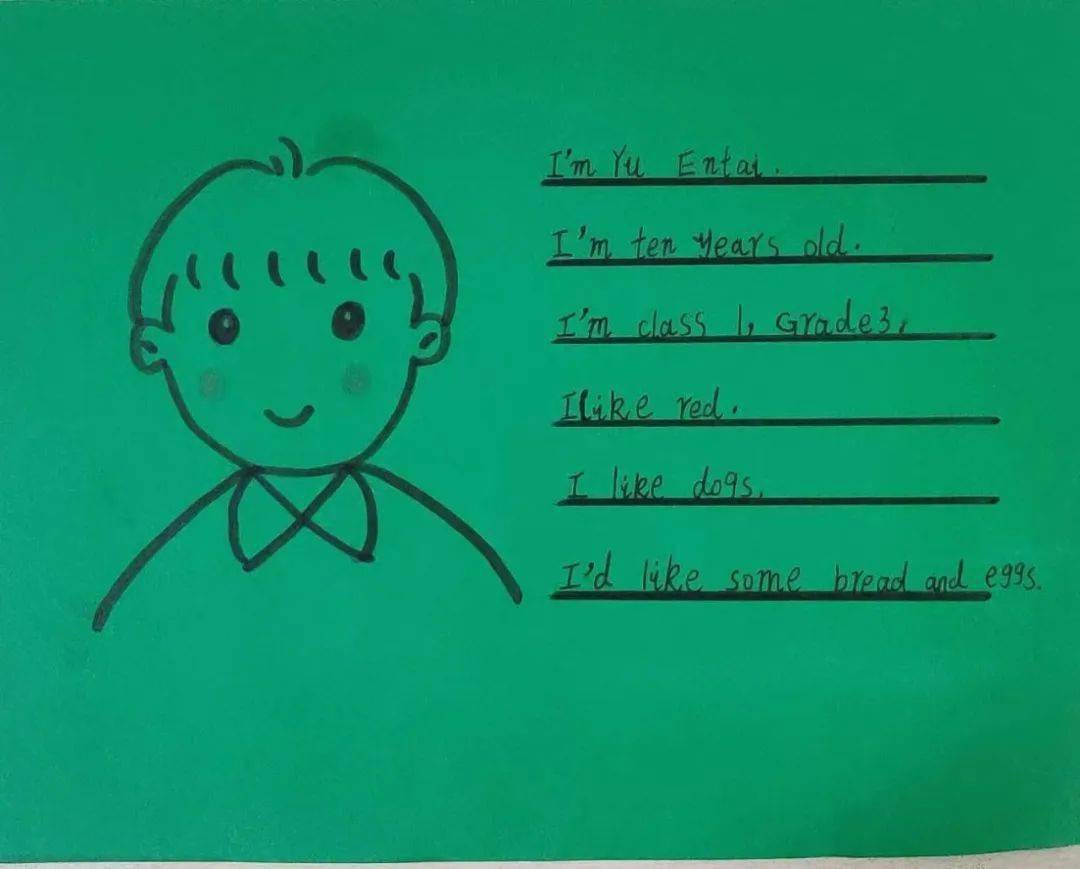 I'm Yu Entai.
I'm ten years old.
I'm class 1, Grade3.
Ilike red.
I like dogs.
I'd like some bread and eggs.